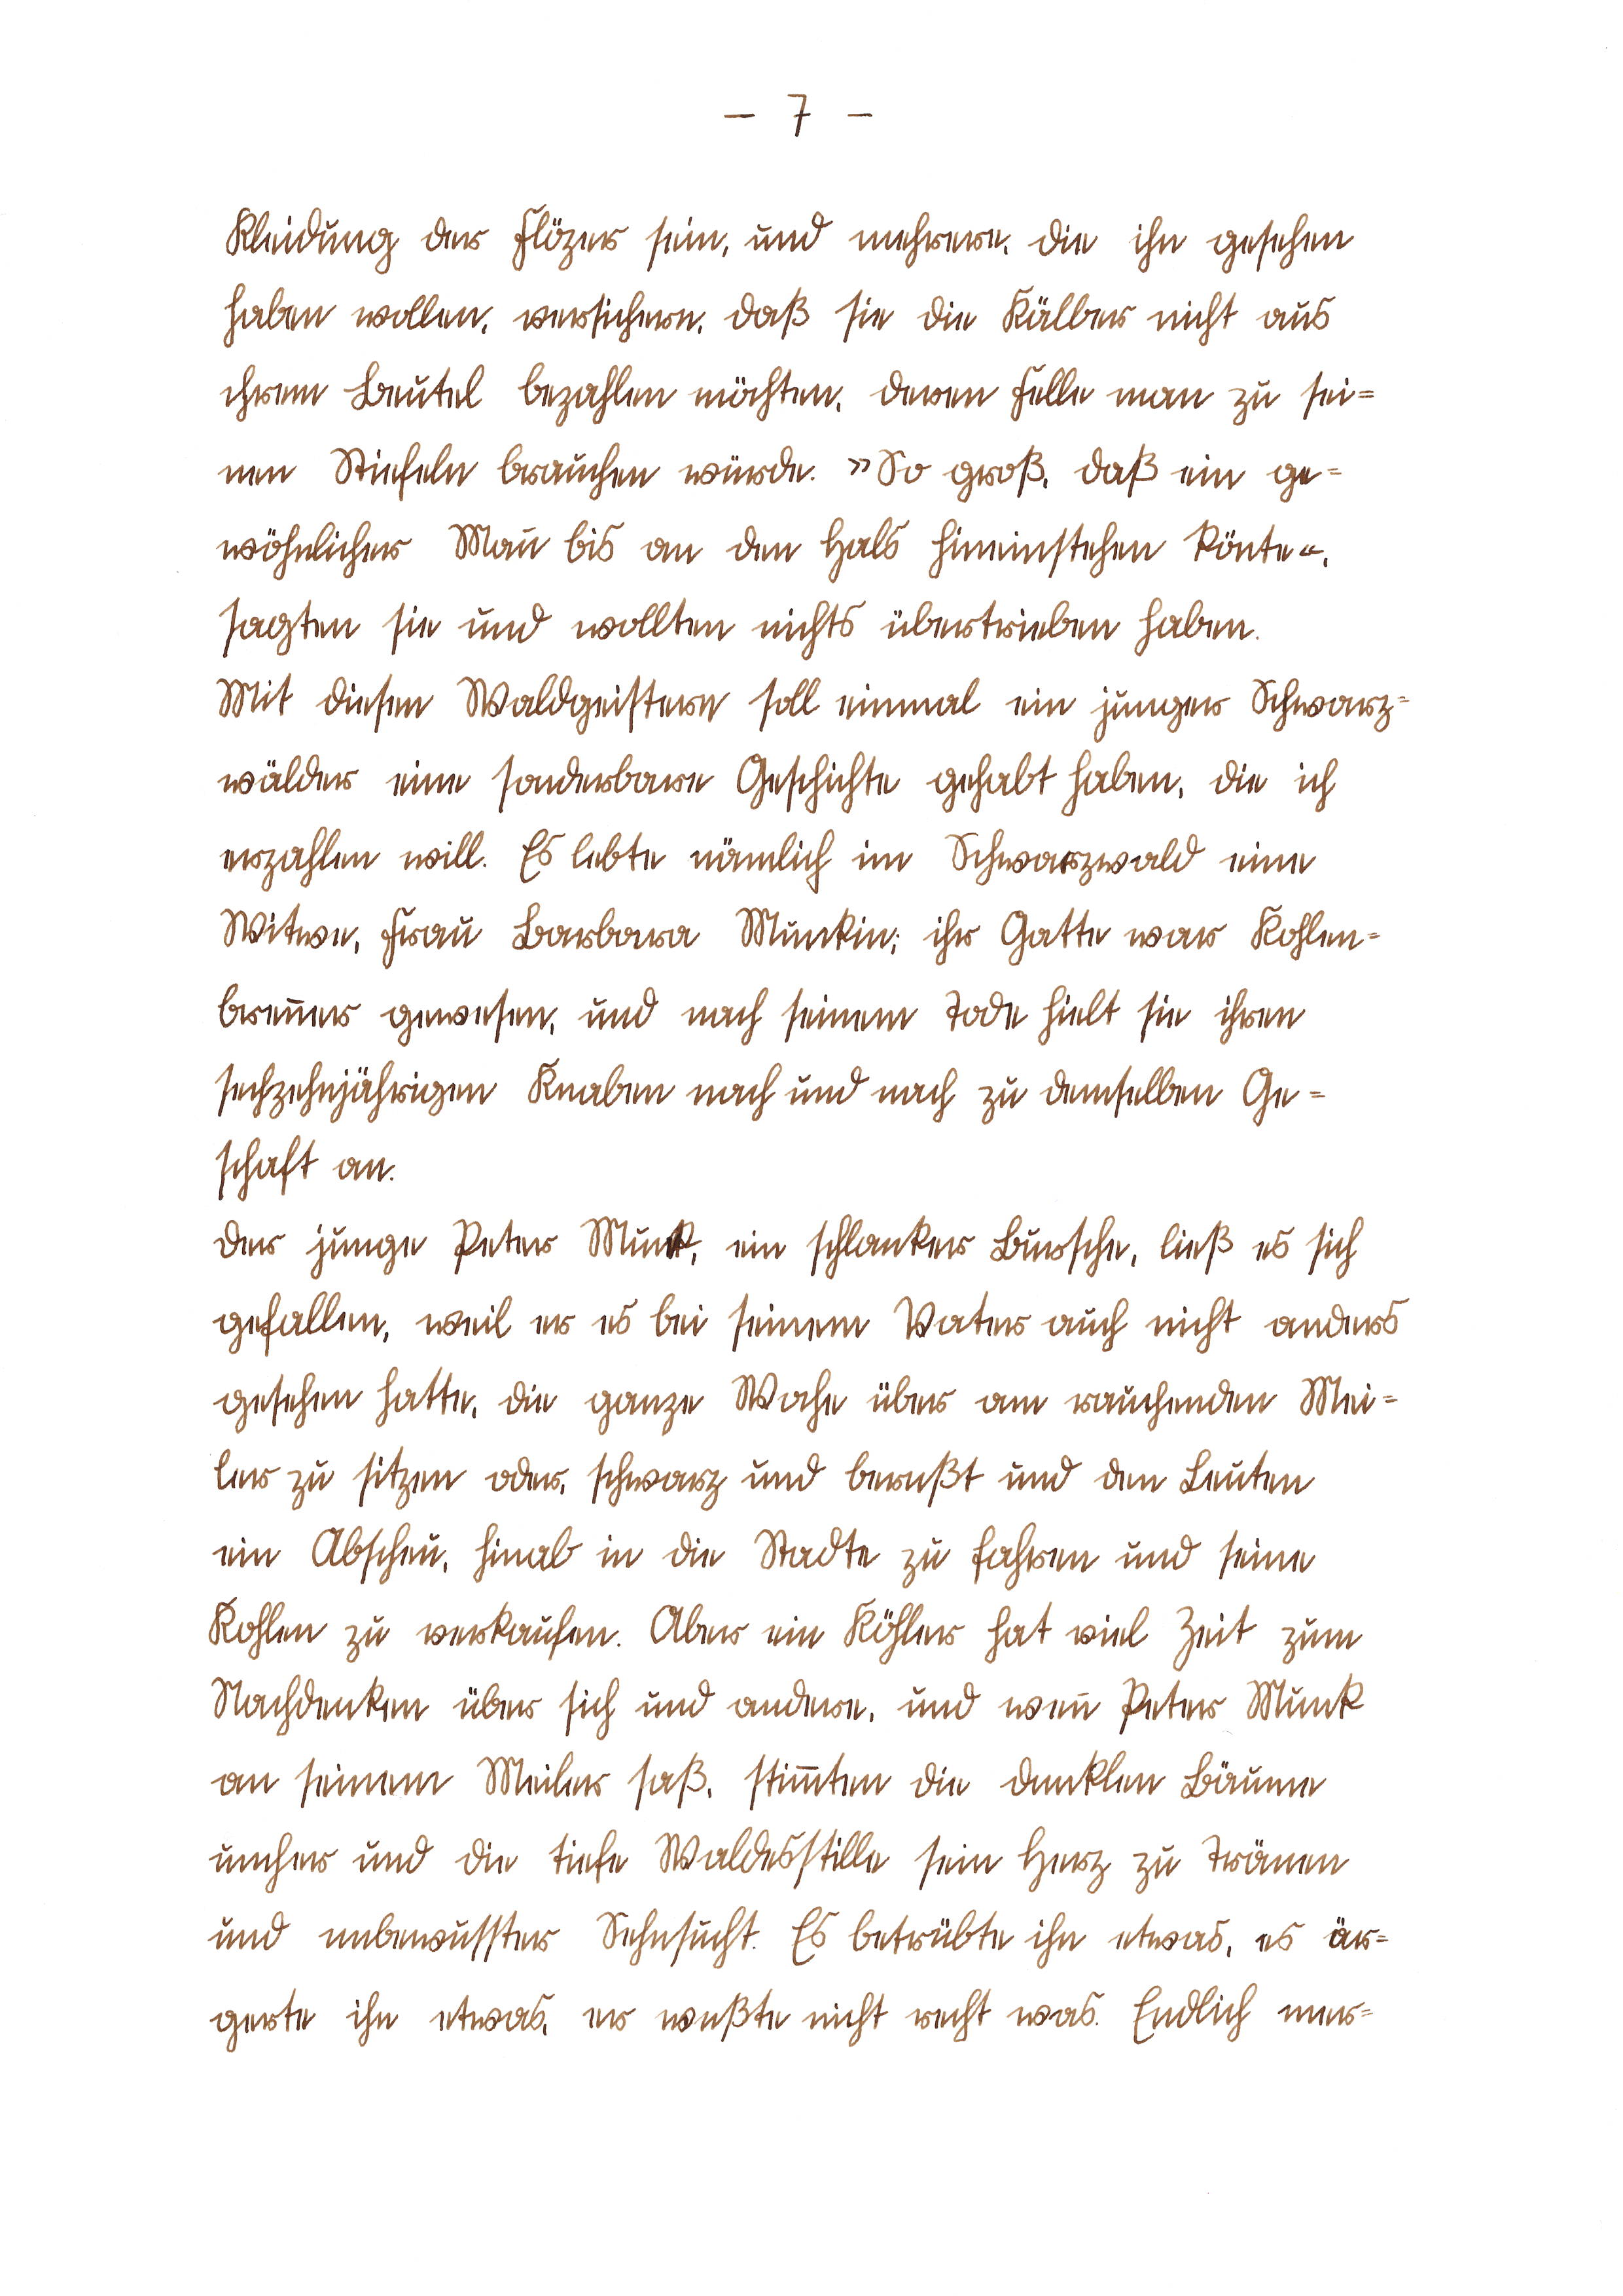 – 7 –
Kleidung der Flözer sein, und mehrere, die ihn gesehen
haben wollen, versichern, daß sie die Kälber nicht aus
ihrem Beutel bezahlen möchten, deren Felle man zu sei=
nen Stiefeln brauchen würde. »So groß, daß ein ge=
wöhnlicher Man̄ bis an den Hals hineinstehen kön̄te«,
sagten sie und wollten nichts übertrieben haben.
Mit diesen Waldgeistern soll einmal ein junger Schwarz=
wälder eine sonderbare Geschichte gehabt haben, die ich
erzahlen will. Es lebte nämlich im Schwarzwald eine
Witwe, Frau Barbara Munkin; ihr Gatte war Kohlen=
bren̄er gewesen, und nach seinem Tode hielt sie ihren
sechzehnjährigen Knaben nach und nach zu demselben Ge=
schaft an.
Der junge Peter Munk, ein schlanker Bursche, ließ es sich
gefallen, weil er es bei seinem Vater auch nicht anders
gesehen hatte, die ganze Woche über am rauchenden Mei=
ler zu sitzen oder, schwarz und berußt und den Leuten
ein Abscheu, hinab in die Stadte zu fahren und seine
Kohlen zu verkaufen. Aber ein Köhler hat viel Zeit zum
Nachdenken über sich und andere, und wen̄ Peter Munk
an seinem Meiler saß, stim̄ten die dunklen Bäume
umher und die tiefe Waldesstille sein Herz zu Tränen
und unbewusster Sehnsucht. Es betrübte ihn etwas, es är=
gerte ihn etwas, er wußte nicht recht was. Endlich mer=